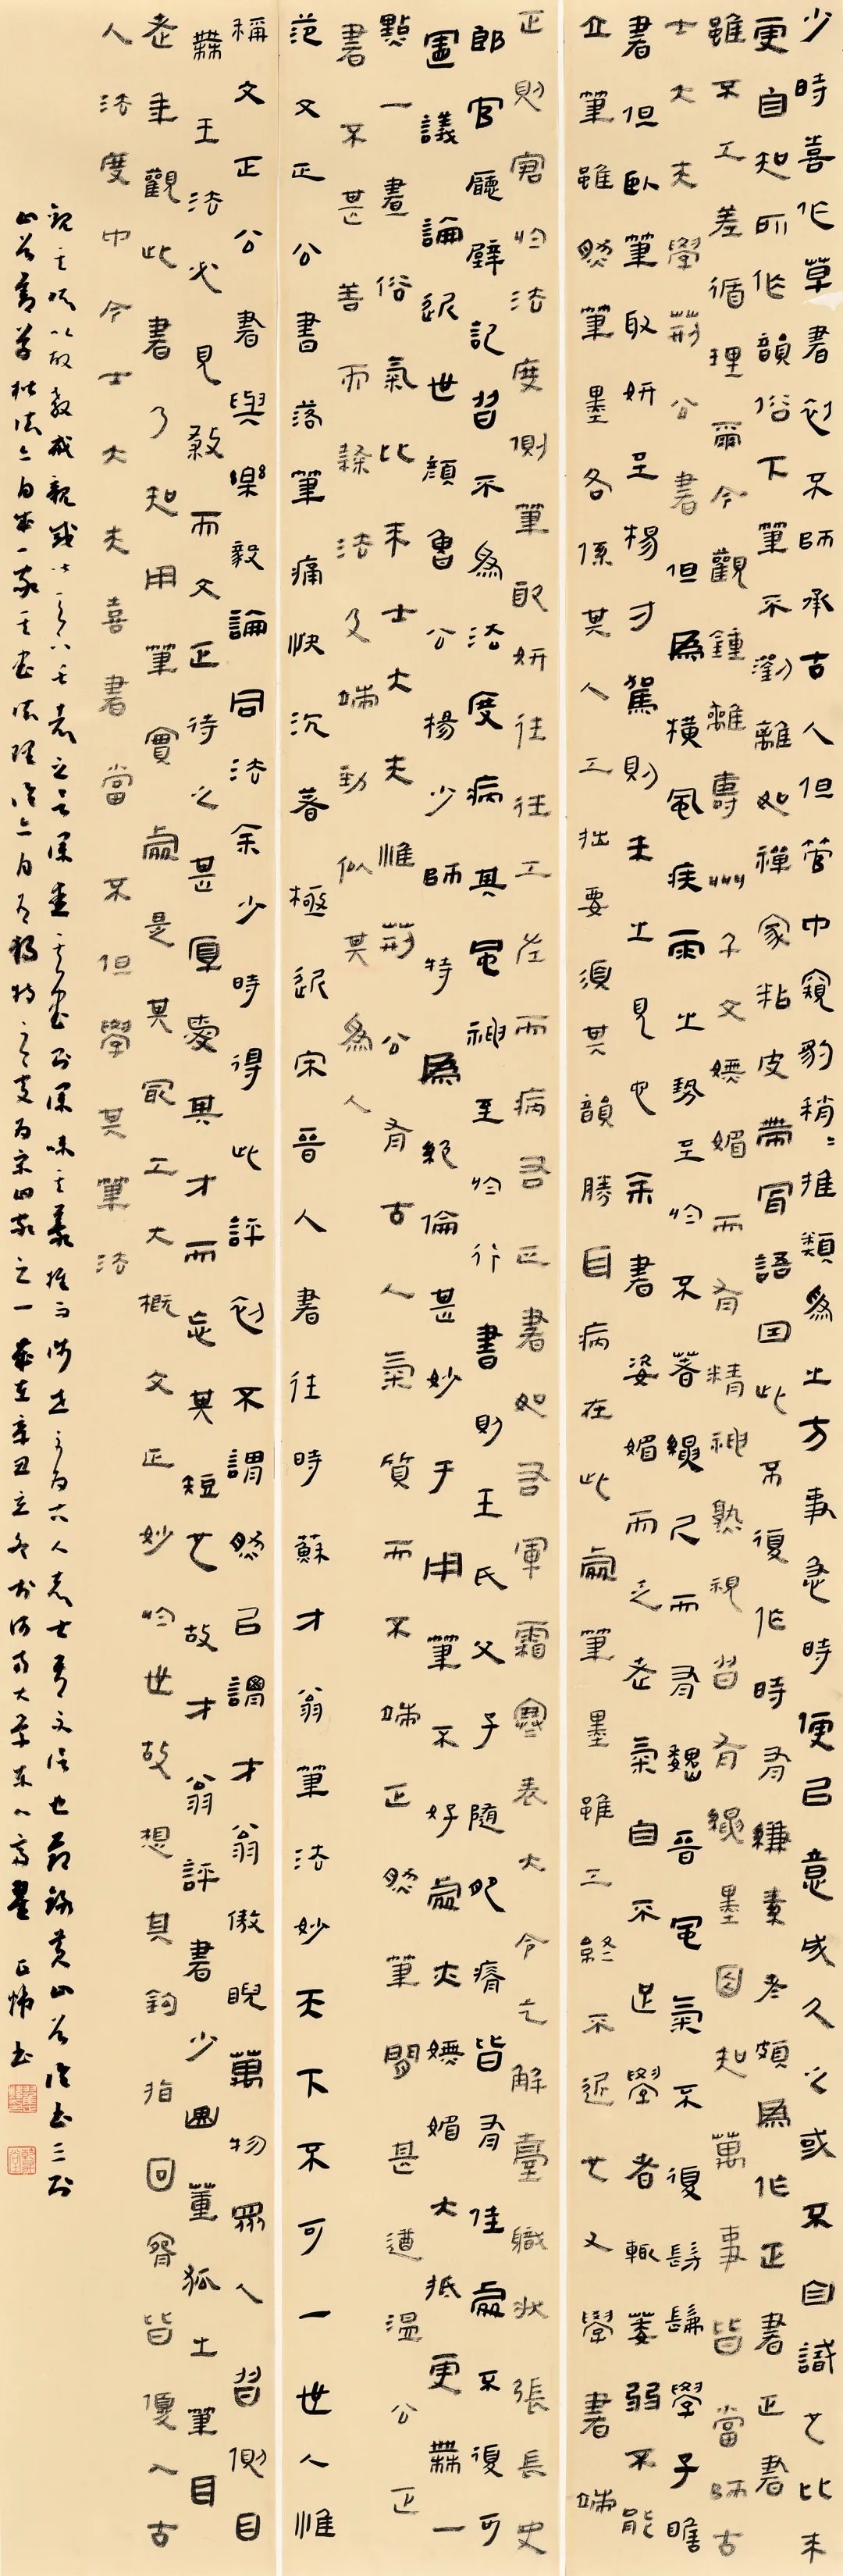 少時喜作草書初不師承古人但管中窺豹稍稍推類爲之方事急時便以意成久之或不自識也比來
更自知所作韻俗下筆不瀏離如禪家粘皮帶骨語因此不復作時有縑素者頗爲作正書正書
雖不工差循理爾今觀鍾離壽州子文嫵媚而有精神熟視皆有繩墨因知萬事皆當師古
士大夫學荊公書但爲橫風疾雨之勢至於不著繩尺而有魏晉風氣不復髣髴學子瞻
書但臥筆取妍至楊才駕則未之見也余書姿媚而乏老氣自不足學者輒萎弱不能
立筆雖然筆墨各係其人工拙要須其韻勝耳病在此處筆墨雖工終不近也又學書端
正則窘於法度側筆取妍往往工左而病右正書如右軍霜寒表大令乞解臺職狀張長史
郎官廳壁記皆不爲法度病其風神至於行書則王氏父子隨肥瘠皆有佳處不復可
置議論近世顏魯公楊少師特爲絕倫甚妙于用筆不好處亦嫵媚大抵更無一
點一畫俗氣比來士大夫惟荊公有古人氣質而不端正然筆間甚遒溫公正
書不甚善而隸法及端勁似其爲人
范文正公書落筆痛快沉著極近宋晉人書往時蘇才翁筆法妙天下不可一世人惟
稱文正公書與樂毅論同法余少時得此評初不謂然以謂才翁傲睨萬物衆人皆側目
無王法必見殺而文正待之甚厚愛其才而忘其短也故才翁評書少曲董狐之筆耳
老年觀此書乃知用筆實處是其最工大概文正妙於世故想其鈎指回腕皆優入古
人法度中今士大夫喜書當不但學其筆法
觀其所以故教戒親戚皆天下長者之言深愛其書則深味其義推而涉世不爲吉人志士吾不信也節錄黃山谷論書三則
山谷善草楷法亦自成一家其書法理論亦自有獨特之處爲宋四家之一歲在辛丑立冬於河南大學東八齋